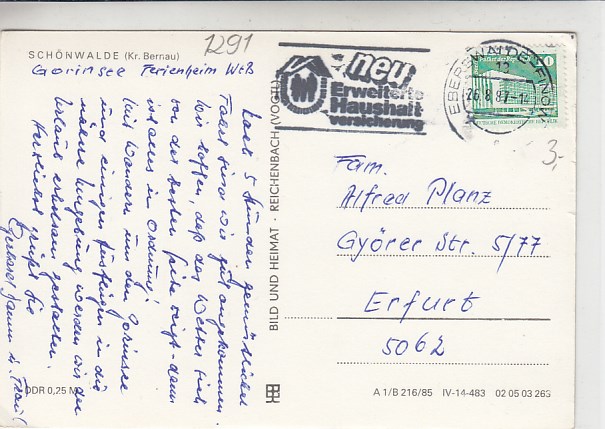 1291
SCHÖNWALDE (Kr. Bernau)
Gorinsee Ferienheim WtB
neu
Erweiterte
Haushalt
versicherung
EBERSWALDE-FINOW 1
12
26.8.87-12
10
3,-
Nach 5 Stunden gemütlicher
Fahrt sind wir gut angekommen.
Wir hoffen, daß das Wetter sich
von der besten Seite zeigt - dann
ist alles in Ordnung!
Mit Wandern um den Gorinsee
und einigen Ausflügen in die
nähere Umgebung werden wir den
Urlaub erholsam gestalten.
Herzlichst grüßt Sie
Gerhard u. Frau
Fam.
Alfred Planz
Györer Str. 5/77
Erfurt
5062
BILD UND HEIMAT · REICHENBACH (VOGTL)
DDR 0,25 M
A 1/B 216/85 IV-14-483 02 05 03 263